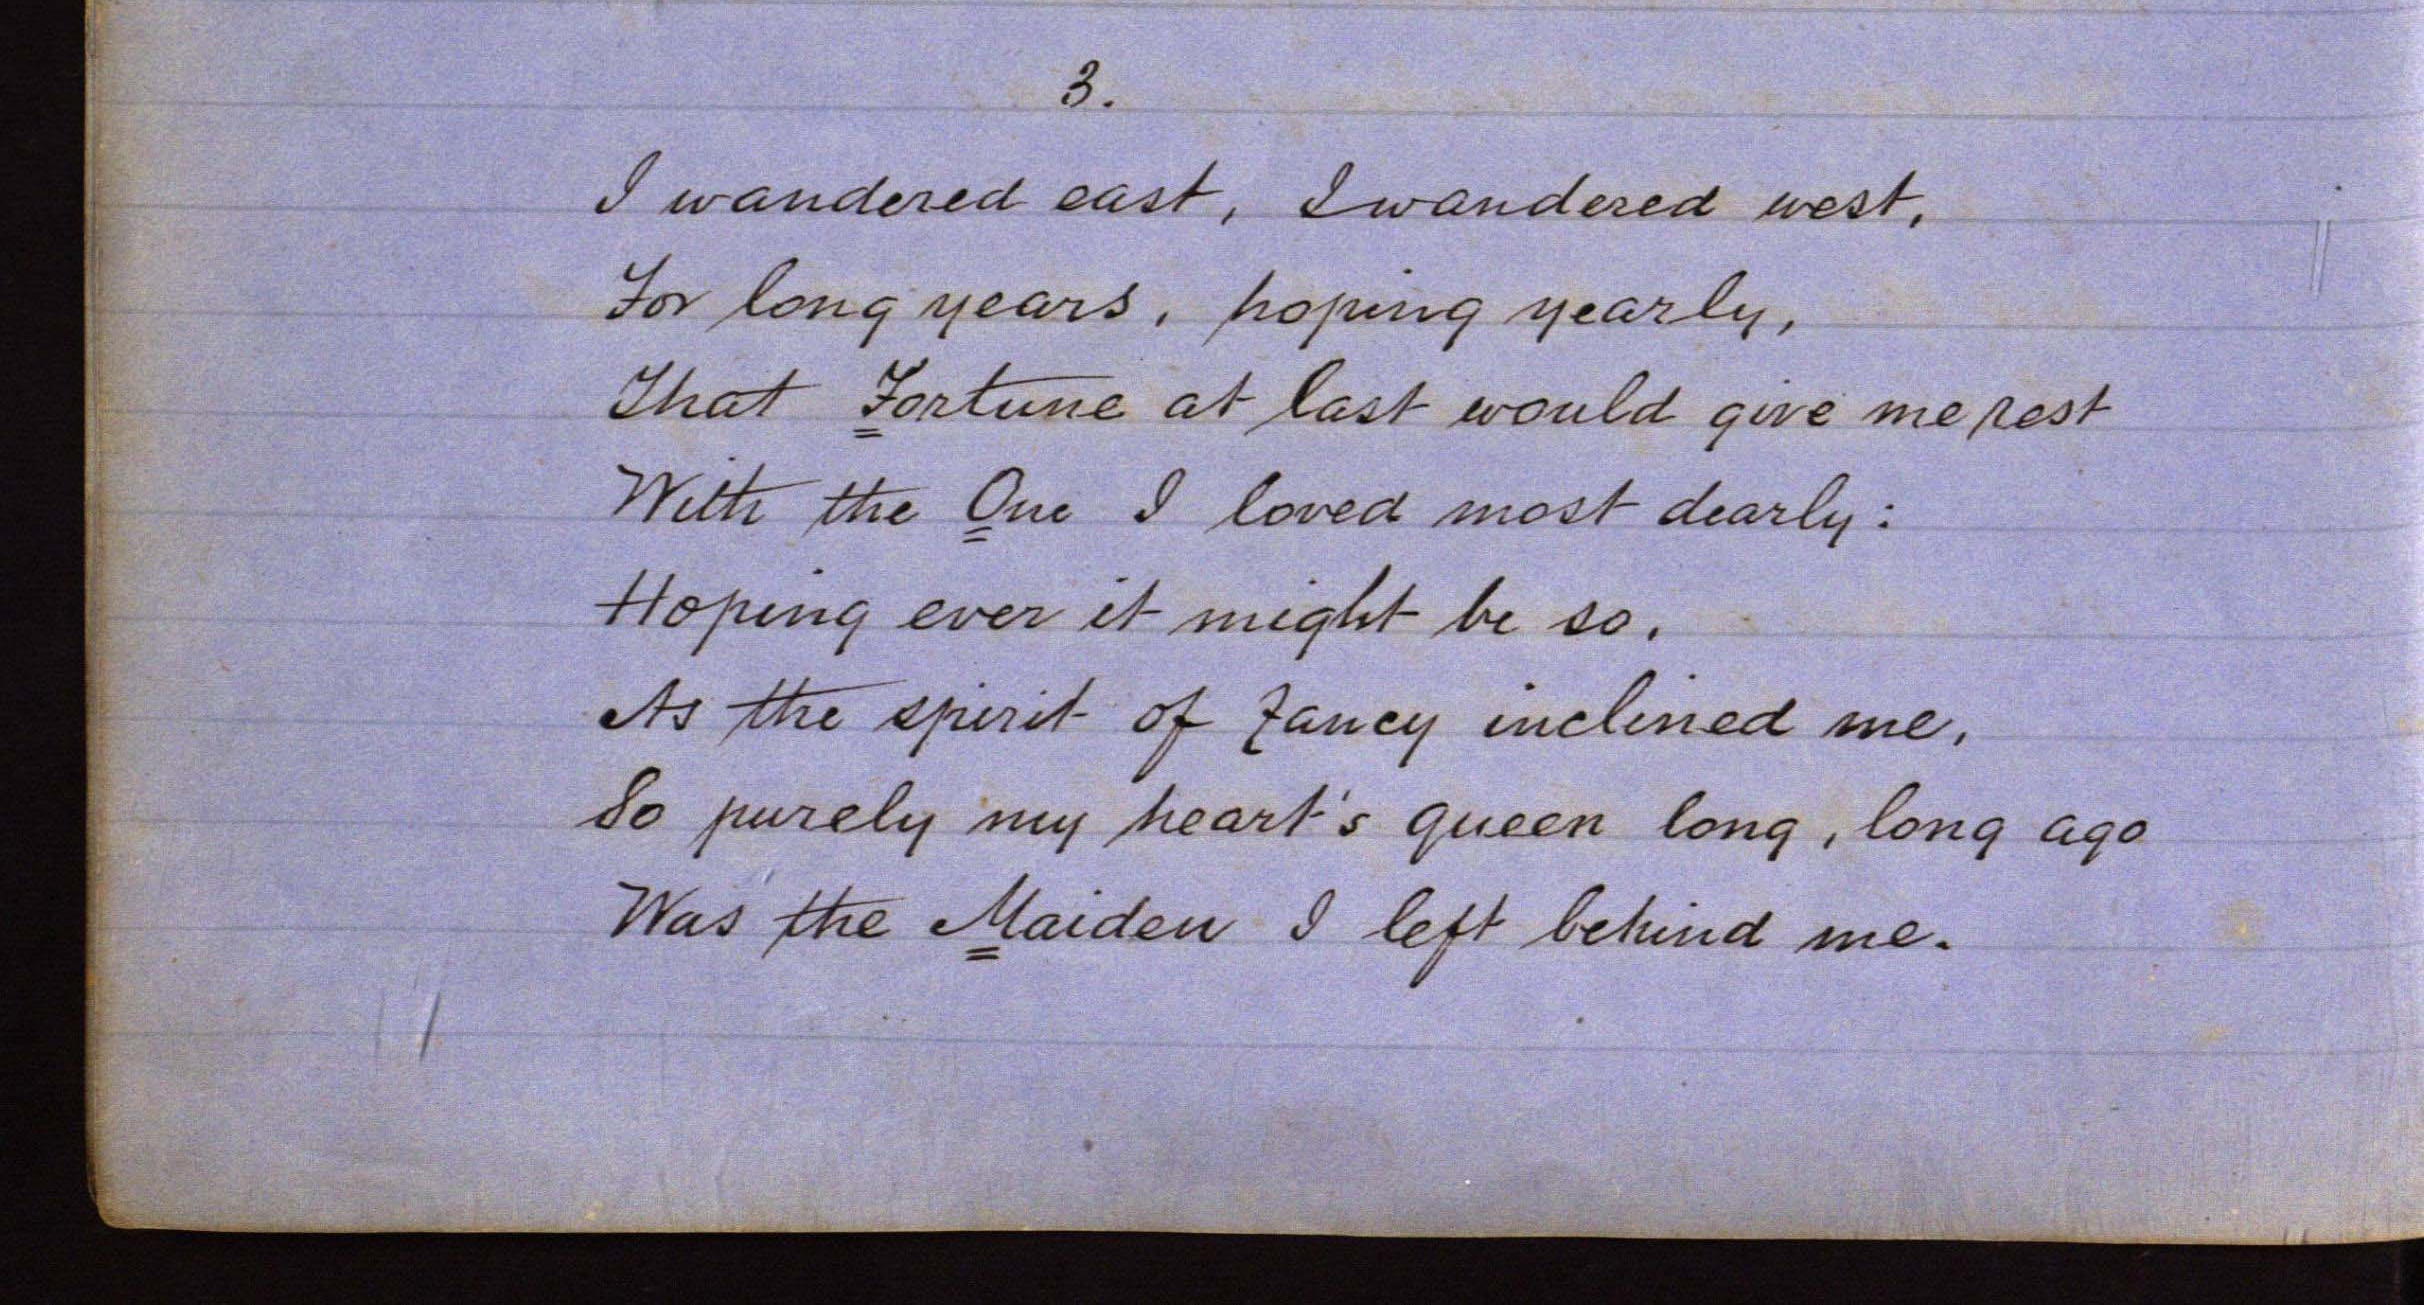 3.
I wandered east, I wandered west,
For long years, hoping yearly,
That Fortune at last would give me rest
With the One I loved most dearly:
Hoping ever it might be so,
As the spirit of fancy inclined me,
So purely my heart's queen long, long ago
Was the Maiden I left behind me.